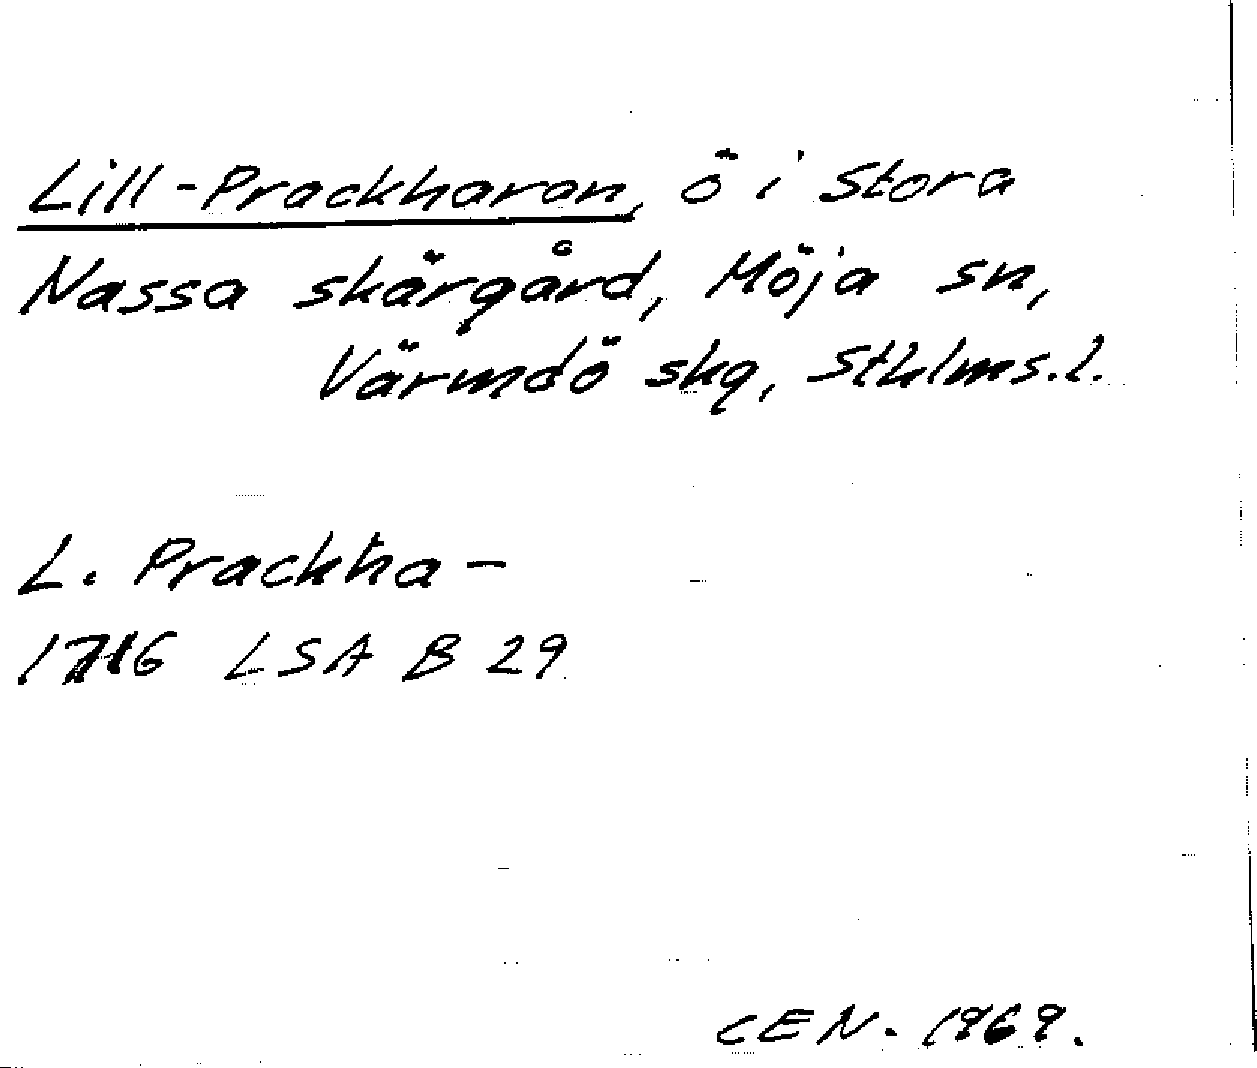 Lill-Prackharan, ö i Stora
Nassa skärgård, Möja sn,
Värmdö skg, Sthlms.l.
L. Prackha-
1716 LSA B 29
CEN. 1969.